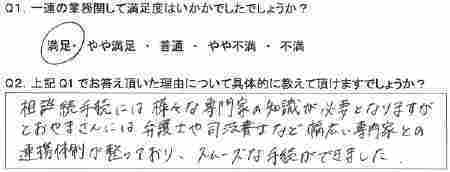 Q1. 一連の業務関して満足度はいかかでしたでしょうか？
満足・ やや満足 ・ 普通 ・ やや不満 ・ 不満
Q2. 上記Q1でお答え頂いた理由について具体的に教えて頂けますでしょうか？
相続手続には様々な専門家の知識が必要となりますが
とおやまさんには弁護士や司法書士など幅広い専門家との
連携体制が整っており、スムーズな手続ができました.